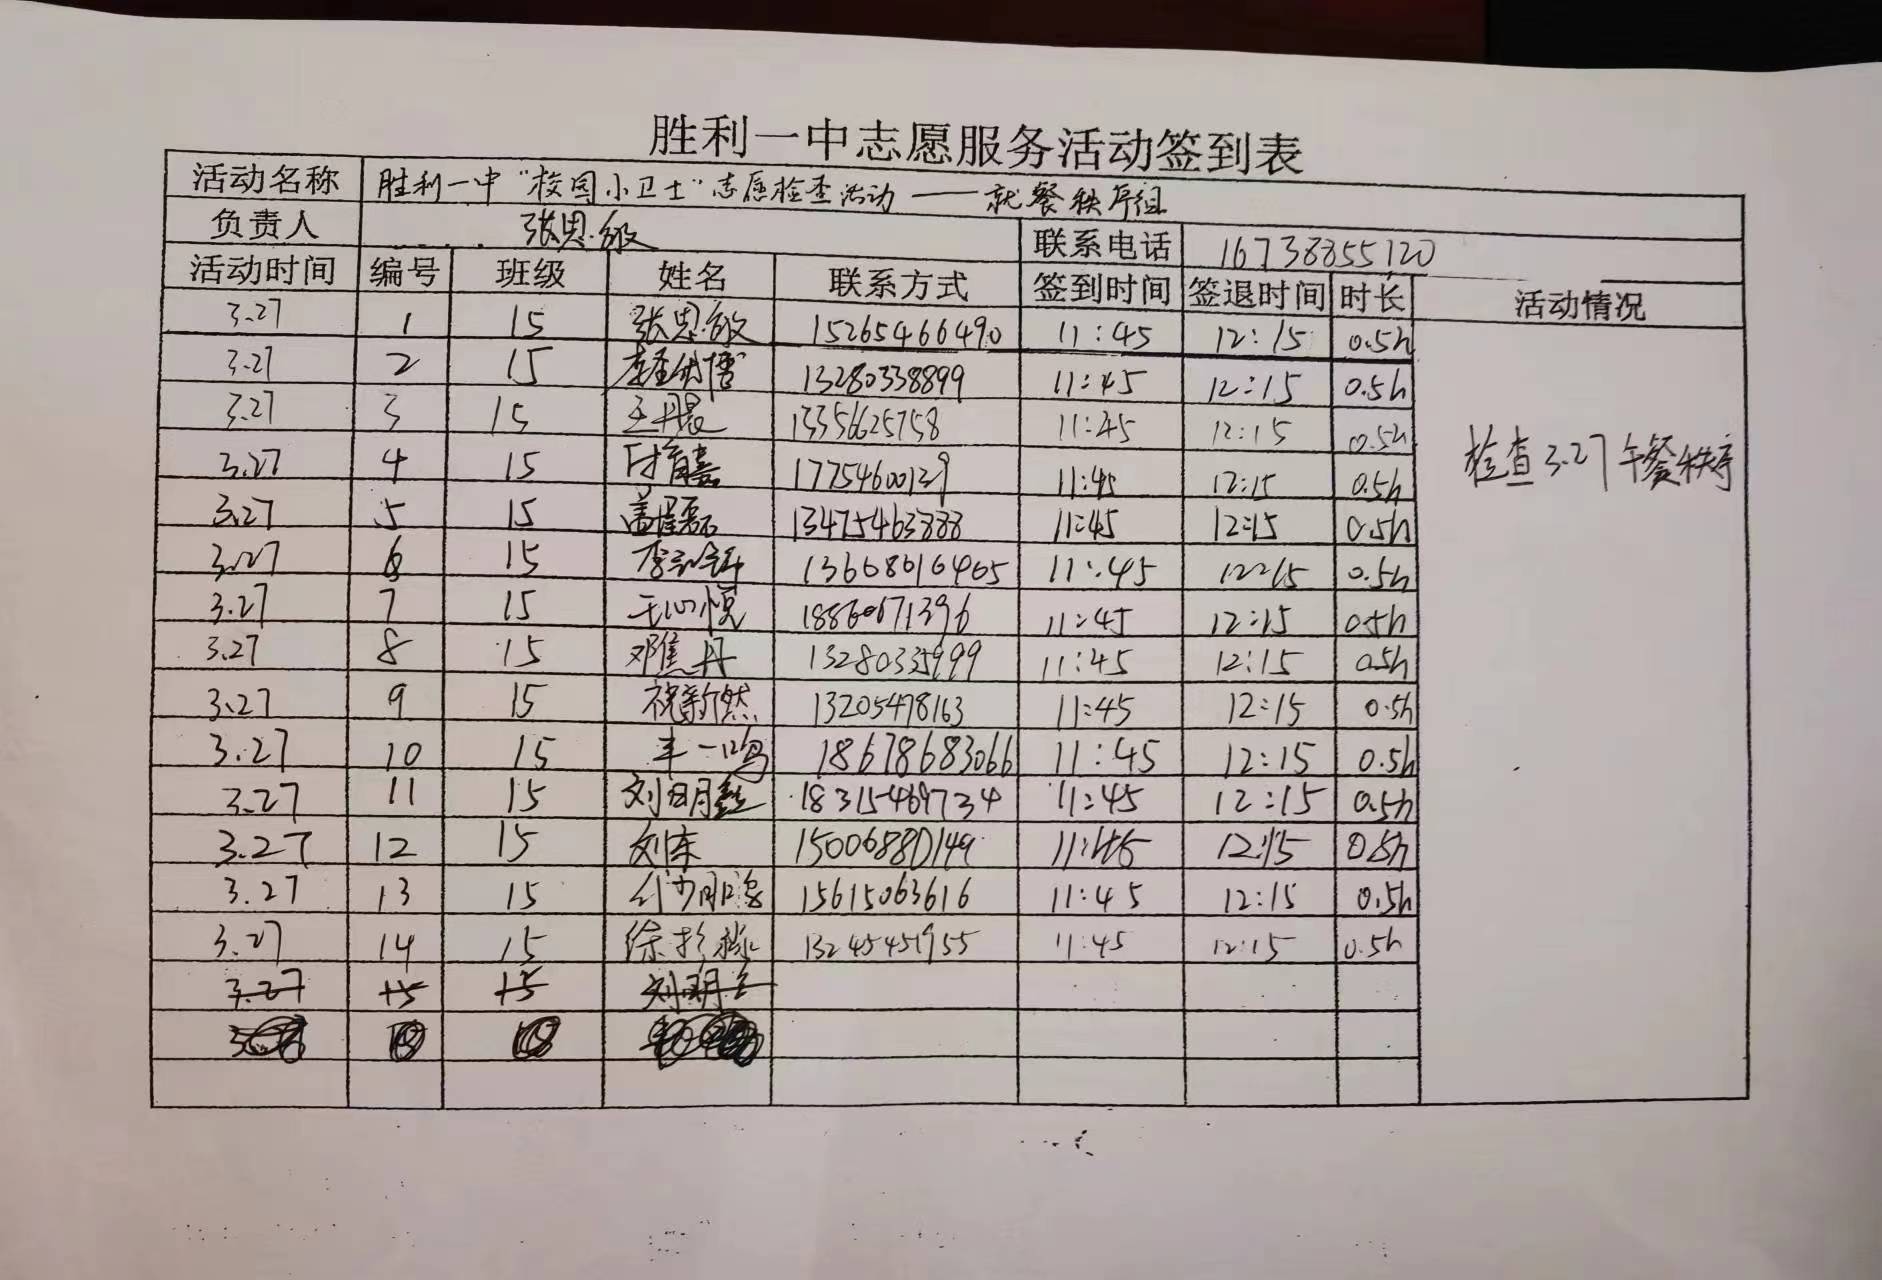 胜利一中志愿服务活动签到表
活动名称 胜利一中“校园小卫士”志愿检查活动——就餐秩序组
负责人 张思敏 联系电话 16738355120
活动时间 编号 班级 姓名 联系方式 签到时间 签退时间 时长 活动情况
3.27 1 15 张思敏 15265466490 11:45 12:15 0.5h
3.27 2 15 13280338899 11:45 12:15 0.5h
3.27 3 15 王丹晨 13356625758 11:45 12:15 0.5h
3.27 4 15 付育嘉 17754600139 11:45 12:15 0.5h
检查3.27午餐秩序
3.27 5 15 13475463888 11:45 12:15 0.5h
3.27 6 15 11:45 12:15 0.5h
3.27 7 15 王心悦 18860671396 11:45 12:15 0.5h
3.27 8 15 邓焦丹 11:45 12:15 0.5h
3.27 9 15 祝新然 13205478163 11:45 12:15 0.5h
3.27 10 15 丰一鸣 18678683066 11:45 12:15 0.5h
3.27 11 15 刘明鑫 18315469734 11:45 12:15 0.5h
3.27 12 15 刘东 15006880149 11:45 12:15 0.5h
3.27 13 15 15615063616 11:45 12:15 0.5h
3.27 14 15 13245451955 11:45 12:15 0.5h
3.27 15 15